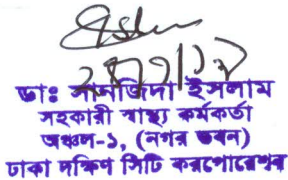 ডাঃ সানজিদা ইসলাম
সহকারী স্বাস্থ্য কর্মকর্তা
অঞ্চল-১, (নগর ভবন)
ঢাকা দক্ষিণ সিটি করপোরেশন